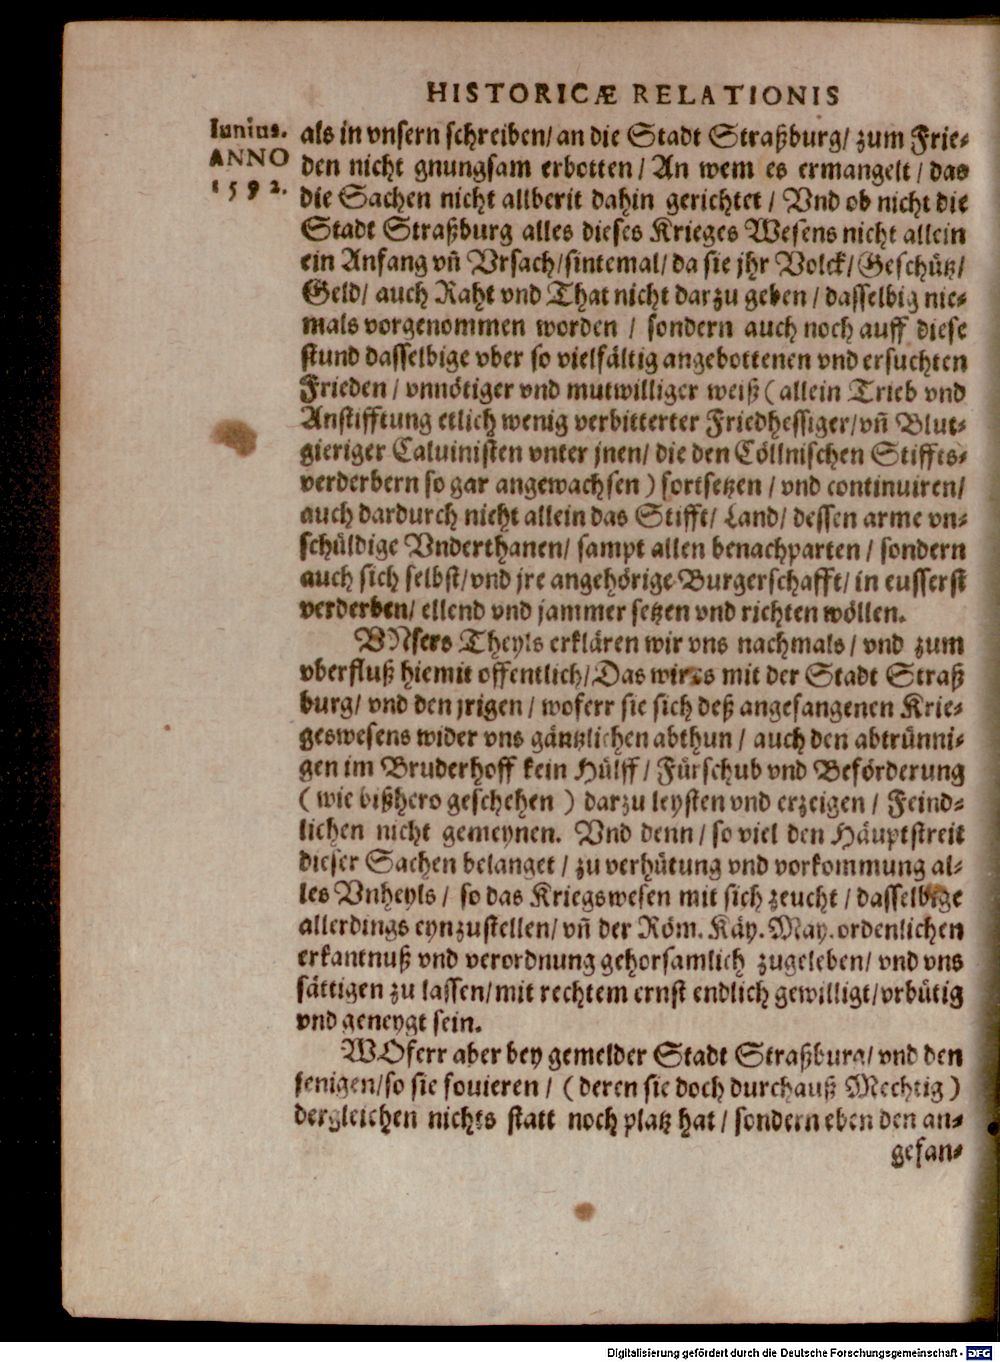 HISTORICÆ RELATIONIS
Iunius.
ANNO
1592.
als in vnsern schreiben/ an die Stadt Straßburg/ zum Frie-
den nicht gnungsam erbotten / An wem es ermangelt / das
die Sachen nicht allberit dahin gerichtet / Vnd ob nicht die
Stadt Straßburg alles dieses Krieges Wesens nicht allein
ein Anfang vñ Vrsach/ sintemal/ da sie jhr Volck/ Geschütz/
Geld/ auch Raht vnd That nicht darzu geben / dasselbig nie-
mals vorgenommen worden / sondern auch noch auff diese
stund dasselbige vber so vielfältig angebottenen vnd ersuchten
Frieden / vnnötiger vnd mutwilliger weiß ( allein Trieb vnd
Anstifftung etlich wenig verbitterter Friedhessiger/ vñ Blut-
gieriger Caluinisten vnter jnen/ die den Cöllnischen Stiffts-
verderbern so gar angewachsen ) fortsetzen / vnd continuiren/
auch dardurch nicht allein das Stifft/ Land/ dessen arme vn-
schüldige Vnderthanen/ sampt allen benachparten / sondern
auch sich selbst/ vnd jre angehörige Burgerschafft/ in eusserst
verderben/ ellend vnd jammer setzen vnd richten wöllen.
VNsers Theyls erklären wir vns nachmals / vnd zum
vberfluß hiemit offentlich/ Das wir es mit der Stadt Straß
burg/ vnd den jrigen / woferr sie sich deß angefangenen Krie-
geswesens wider vns gäntzlichen abthun / auch den abtrünni-
gen im Bruderhoff kein Hülff / Fürschub vnd Beförderung
( wie bißhero geschehen ) darzu leysten vnd erzeigen / Feind-
lichen nicht gemeynen. Vnd denn / so viel den Häuptstreit
dieser Sachen belanget / zu verhütung vnd vorkommung al-
les Vnheyls / so das Kriegswesen mit sich zeucht / dasselbige
allerdings eynzustellen/ vñ der Röm. Käy. May. ordenlichen
erkantnuß vnd verordnung gehorsamlich zugeleben/ vnd vns
sättigen zu lassen/ mit rechtem ernst endlich gewilligt/ vrbütig
vnd geneygt sein.
WOferr aber bey gemelder Stadt Straßburg/ vnd den
jenigen/ so sie fouieren / ( deren sie doch durchauß Mechtig )
dergleichen nichts statt noch platz hat / sondern eben den an-
gefan-
Digitalisierung gefördert durch die Deutsche Forschungsgemeinschaft - DFG